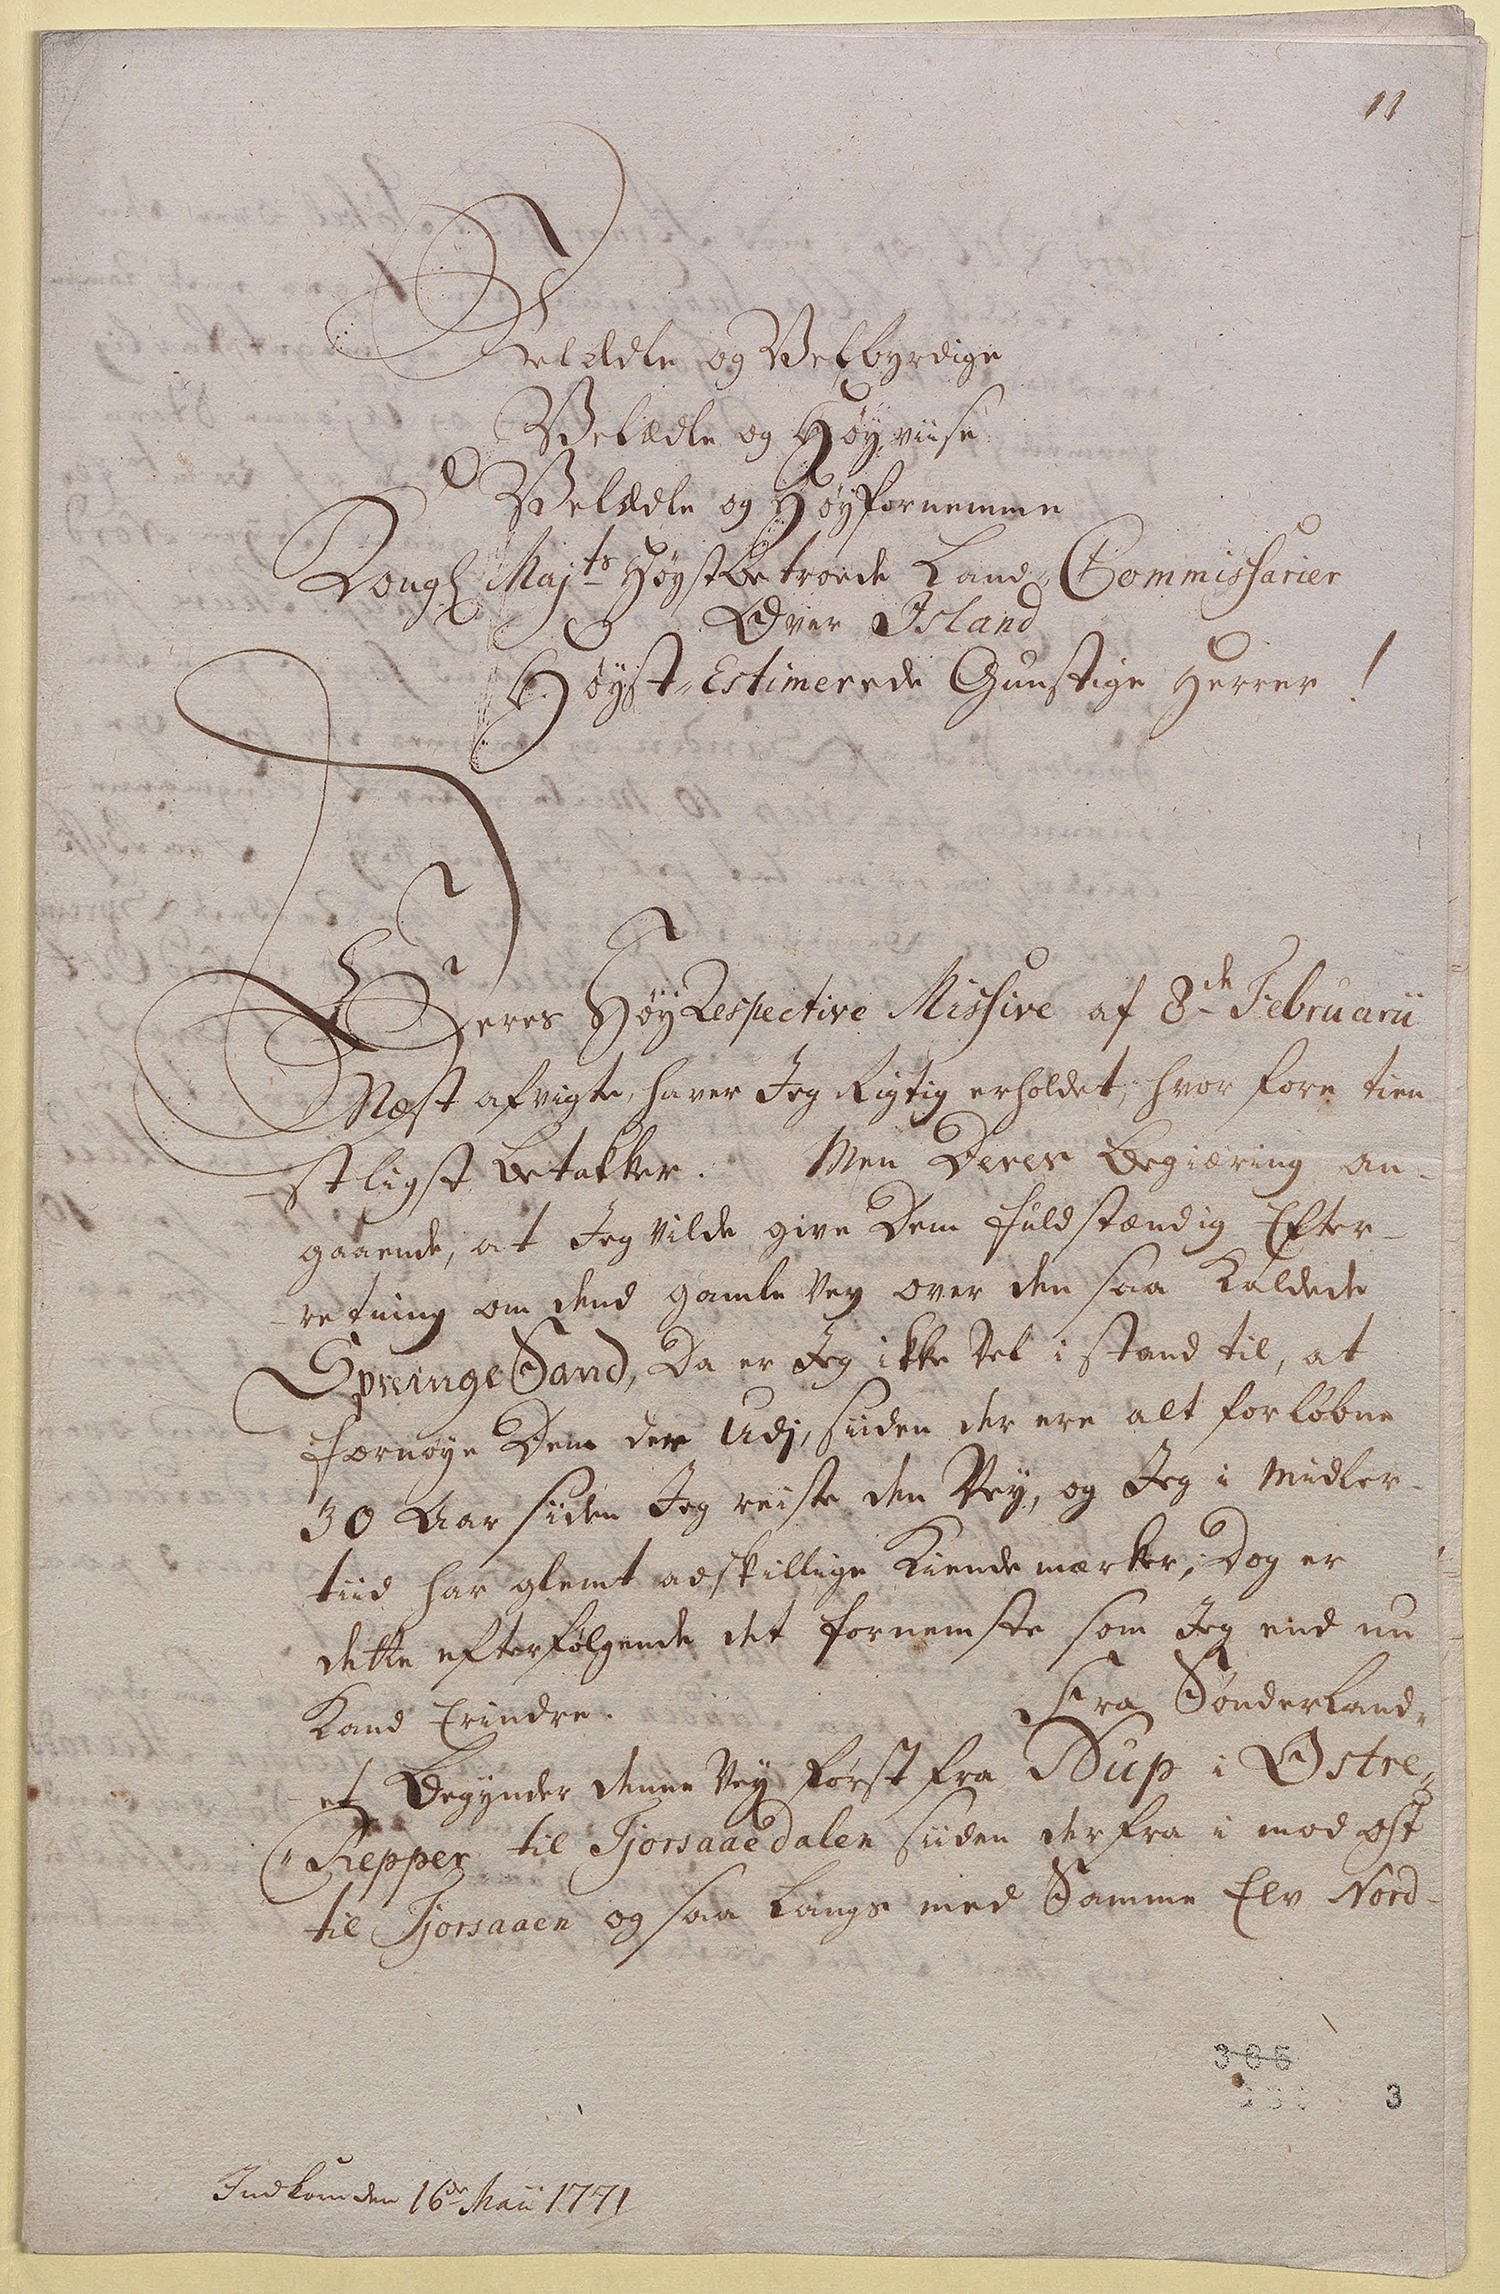 11
Velædle og Velbyrdige
Velædle og Høyviise
Velædle og Høyfornemme
Kongl Majts Høystbetroede Land-Commissarier
Over Island
Høyst-Estimerede Gunstige Herrer!
Deres HøyRespective Missive af 8de Februarii
Næst afvigte, haver Jeg Rigtig erholdet, hvor fore tien
stligst betakker. Men Deres Begiæring an-
gaaende, at Jeg vilde give Dem fuldstændig Efter-
-retning om dend gamle Vey over den saa kaldede
SpreingeSand, Da er Jeg ikke Vel i stand til, at
fornøye Dem der Udj, siiden der ere alt forløbne
30 Aar siiden Jeg reiste den Vey, og Jeg i Midler-
tiid har glemt adskillige Kiendemærker; Dog er
dette efterfølgende det fornemste som Jeg end nu
Kand Erindre. Fra Sønderland-
et Begynder denne Vey først fra Nup i Østre-
Repper til Tjorsaaedalen siiden derfra i mod ost
til Tjorsaaen og saa langs med Samme Elv Nord-
386
3
Indkom den 16de Maii 1771